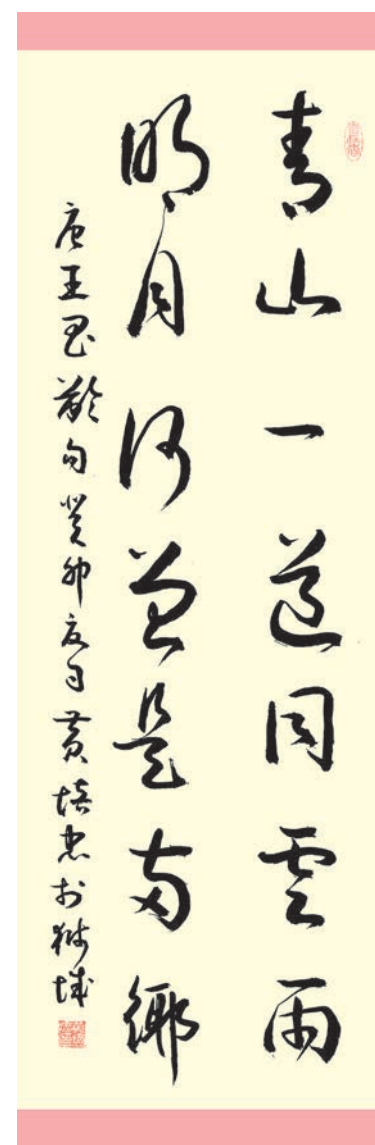 青山一道同雲雨
明月何曾是兩鄉
唐王昌齡句癸卯夏月黃培忠於獅城